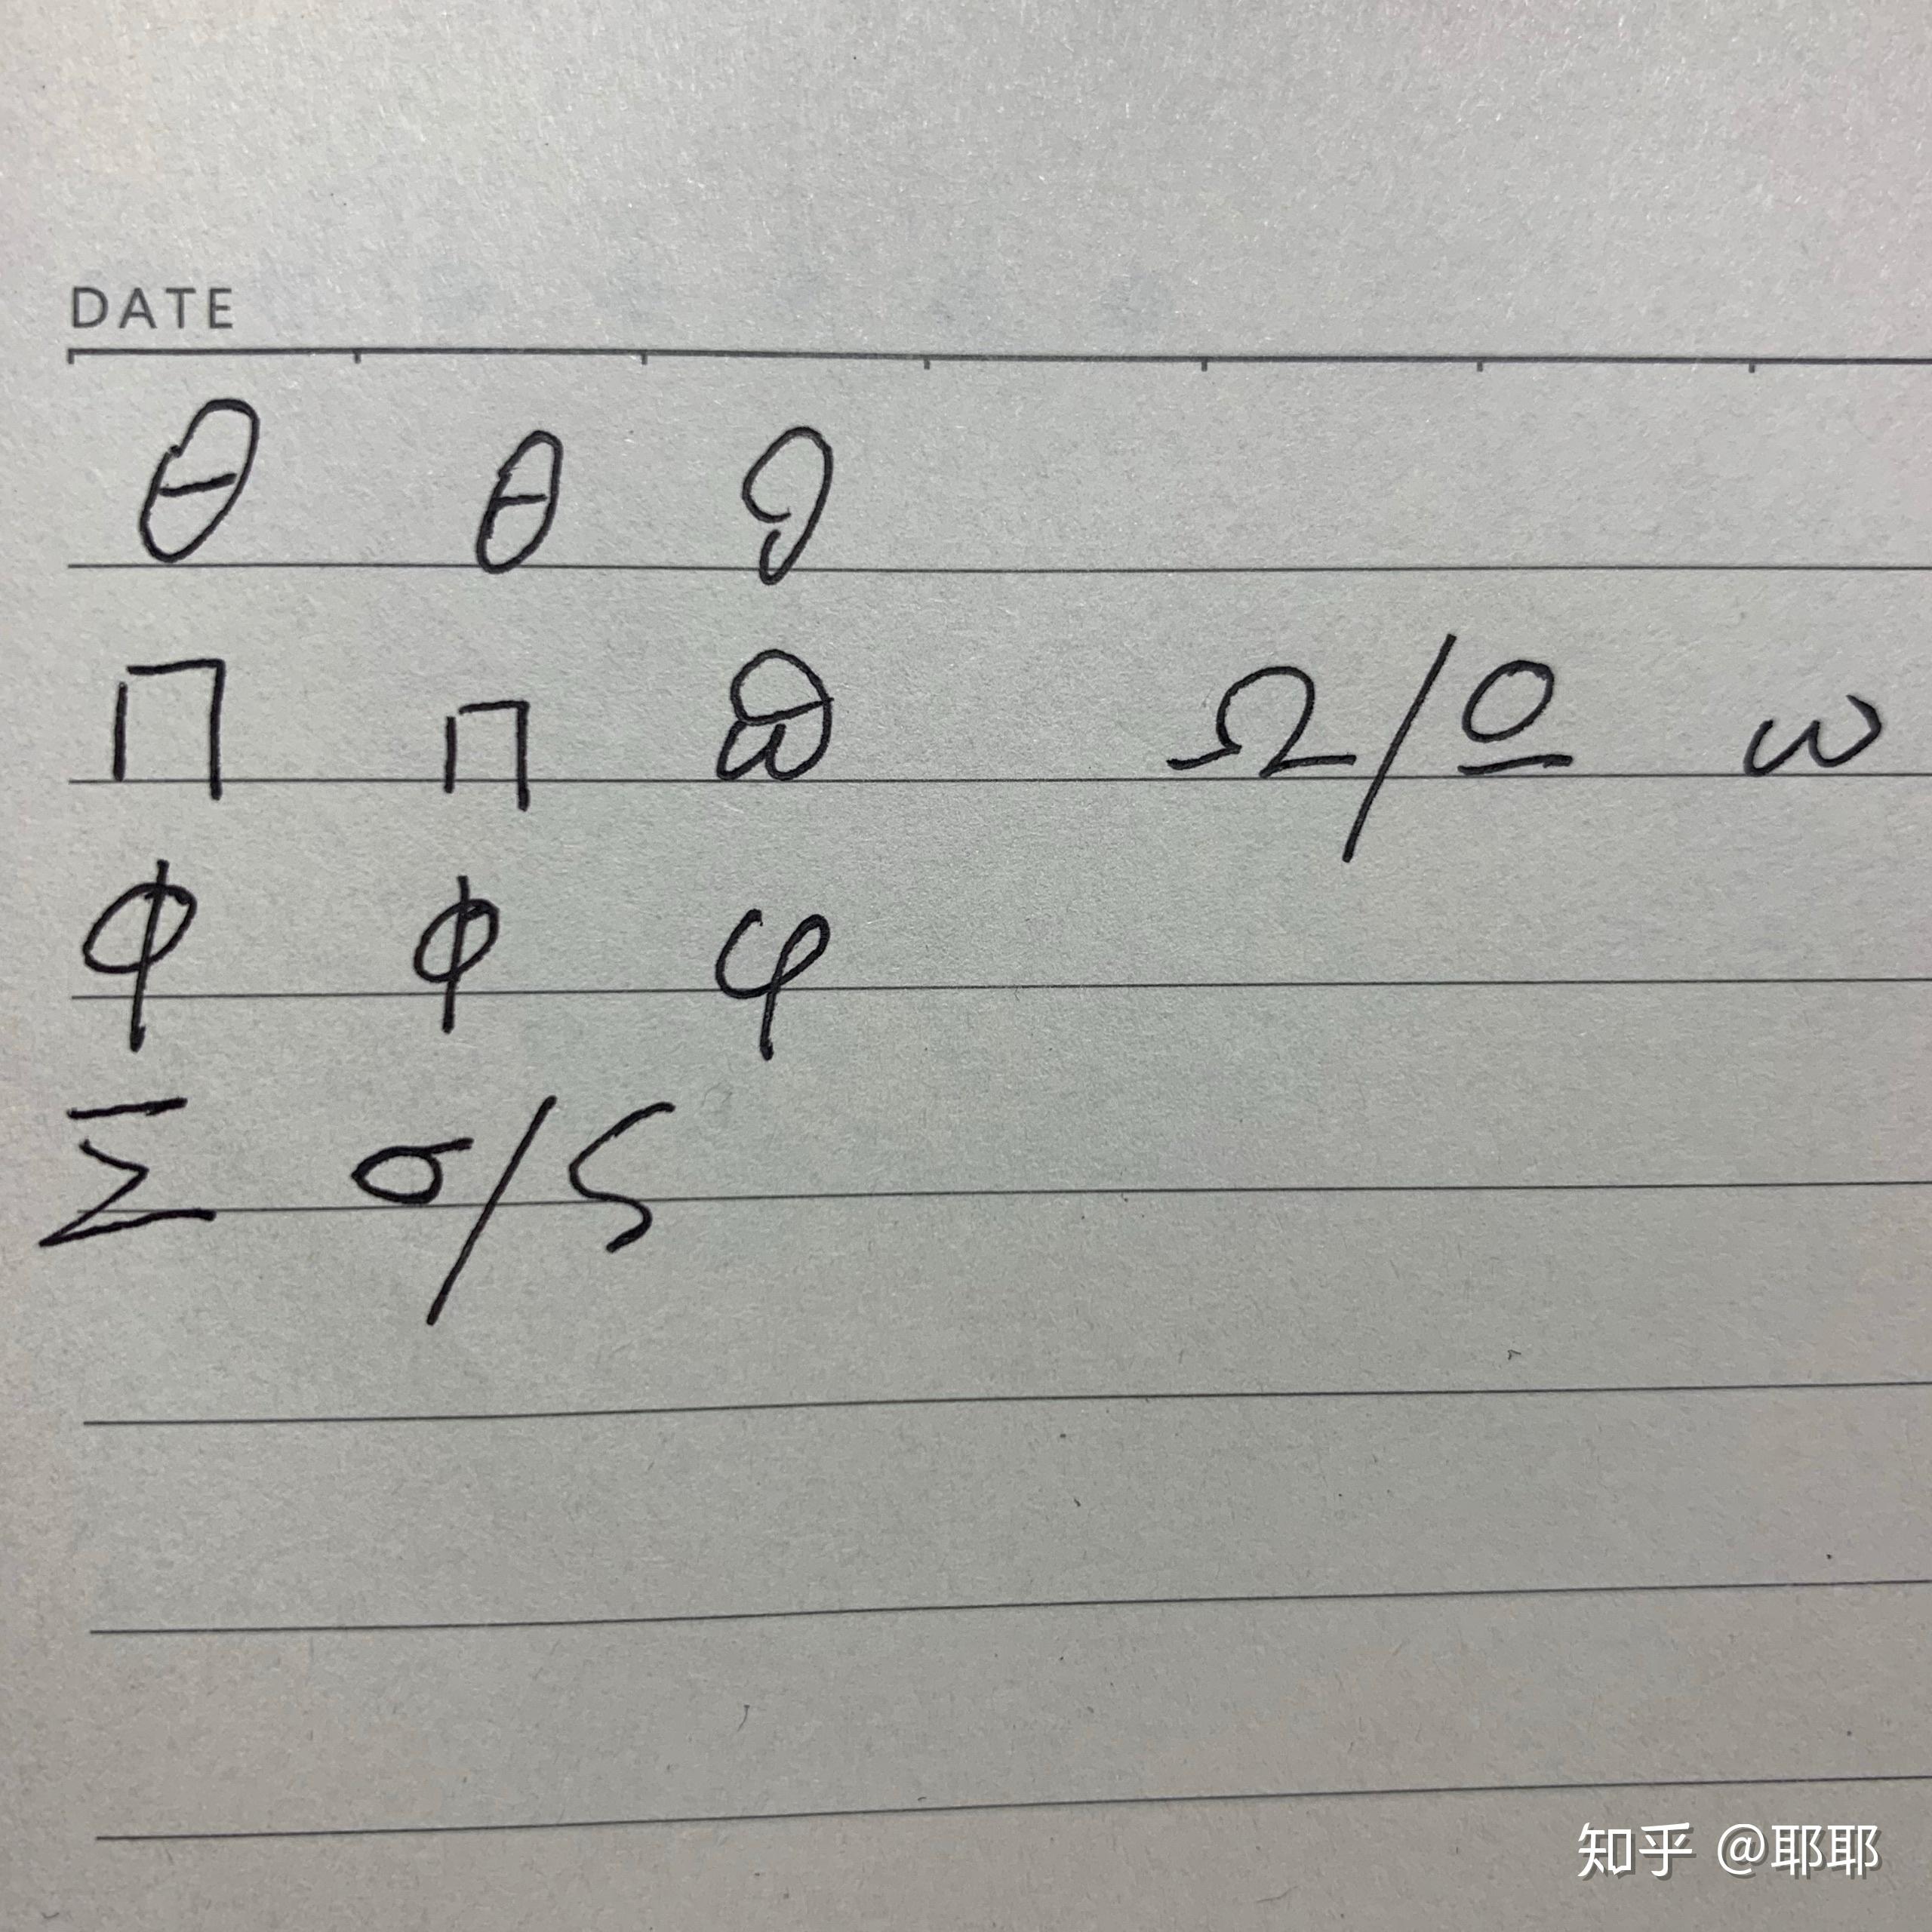 DATE
Θ θ ϑ
Π π ϖ Ω/Ω ω
Φ ϕ φ
Σ σ/ς
知乎 @耶耶